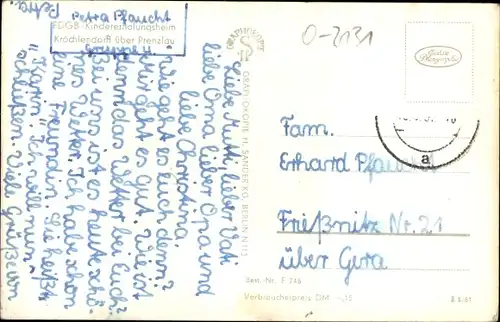 Petra Pfaucht
FDGB-Kindererholungsheim
Kröchlendorf über Prenzlau
Gruppe 4.
Liebe Mutti, lieber Vati
liebe Oma lieber Opa und
liebe Christina.
Wie geht es euch denn?
Mir geht es gut. Wie ist
denn das Wetter bei Euch?
Bei uns ist es heute schö-
nes Wetter. Ich habe schon
eine Freundin. Sie heißt
"Karin". Ich will nun
schließen. Viele Grüße von
Petra
GRAPHOKOPIE
GRAPHOKOPIE H. SANDER KG. BERLIN N 113
0-2131
Echte
Photographie
a
Fam.
Erhard
Frießnitz Nr. 21
über Gera
Best. Nr. F 246
Verbraucherpreis DM -,15